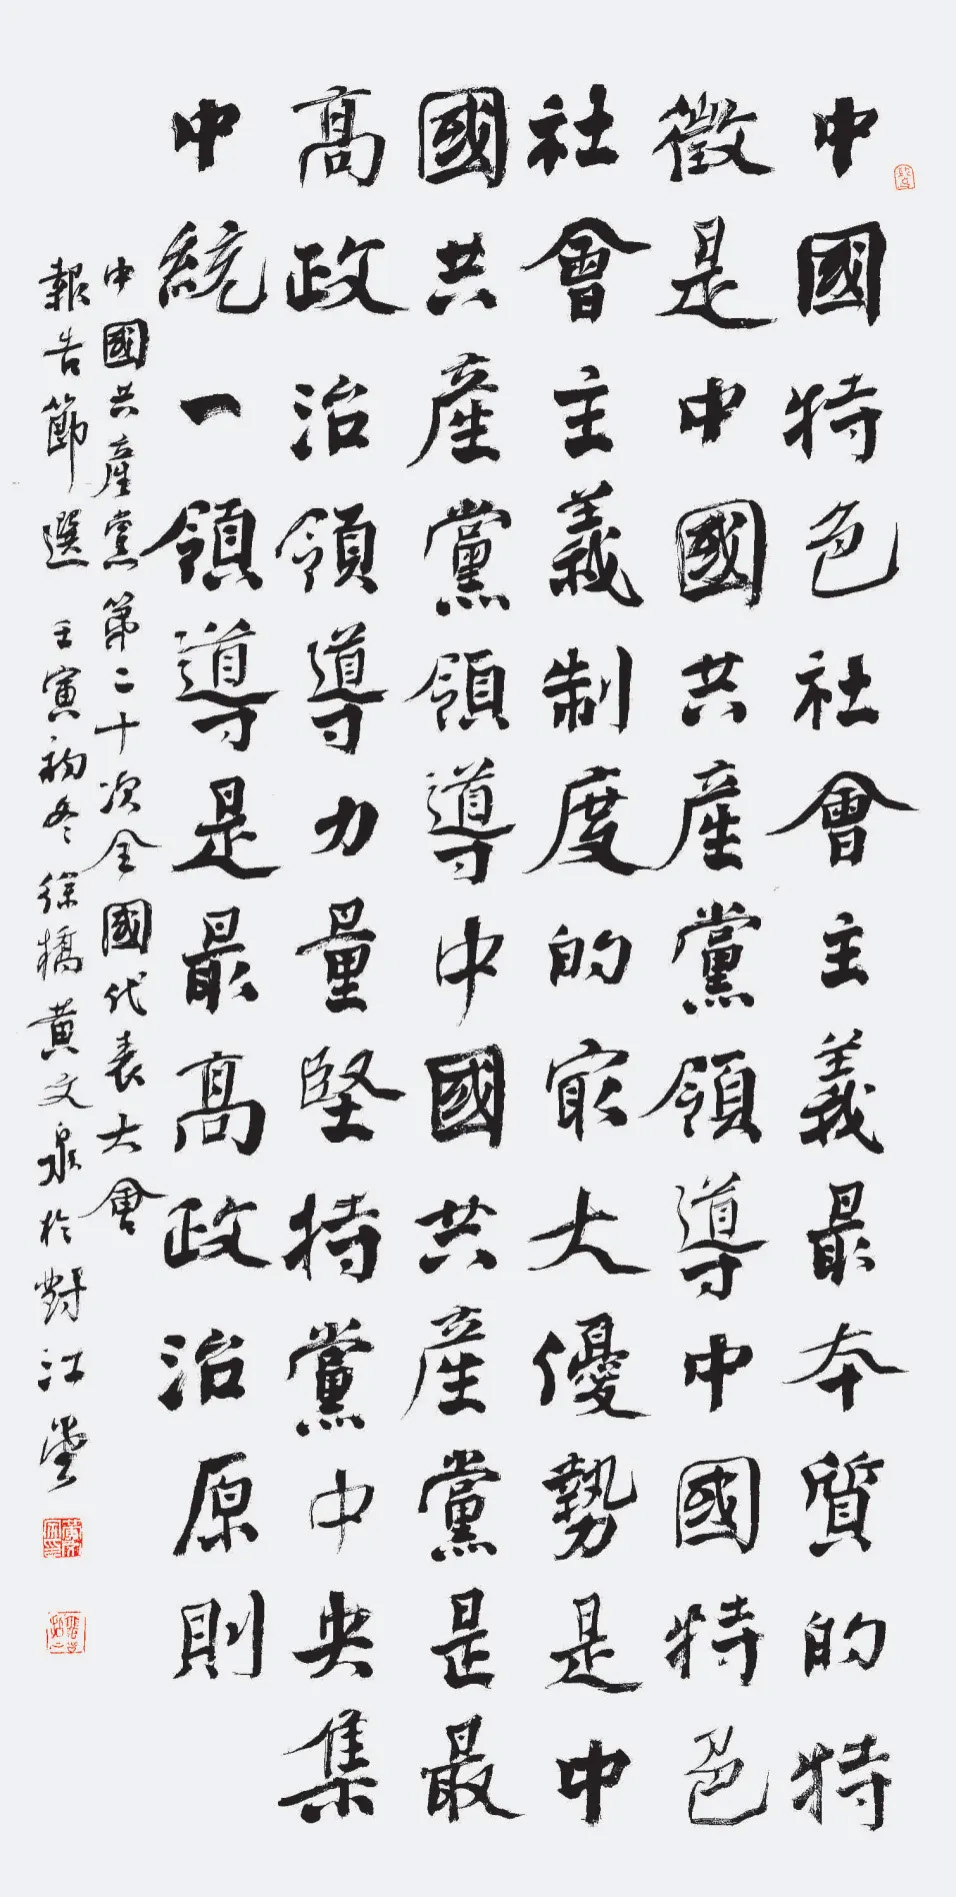 中國特色社會主義最本質的特
徵是中國共產黨領導中國特色
社會主義制度的冣大優勢是中
國共產黨領導中國共產黨是最
高政治領導力量堅持黨中央集
中統一領導是最高政治原則
中國共產黨第二十次全國代表大會
報告節選 壬寅初冬徐橋黃文泉於對江堂